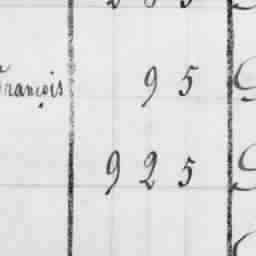 François 95
925